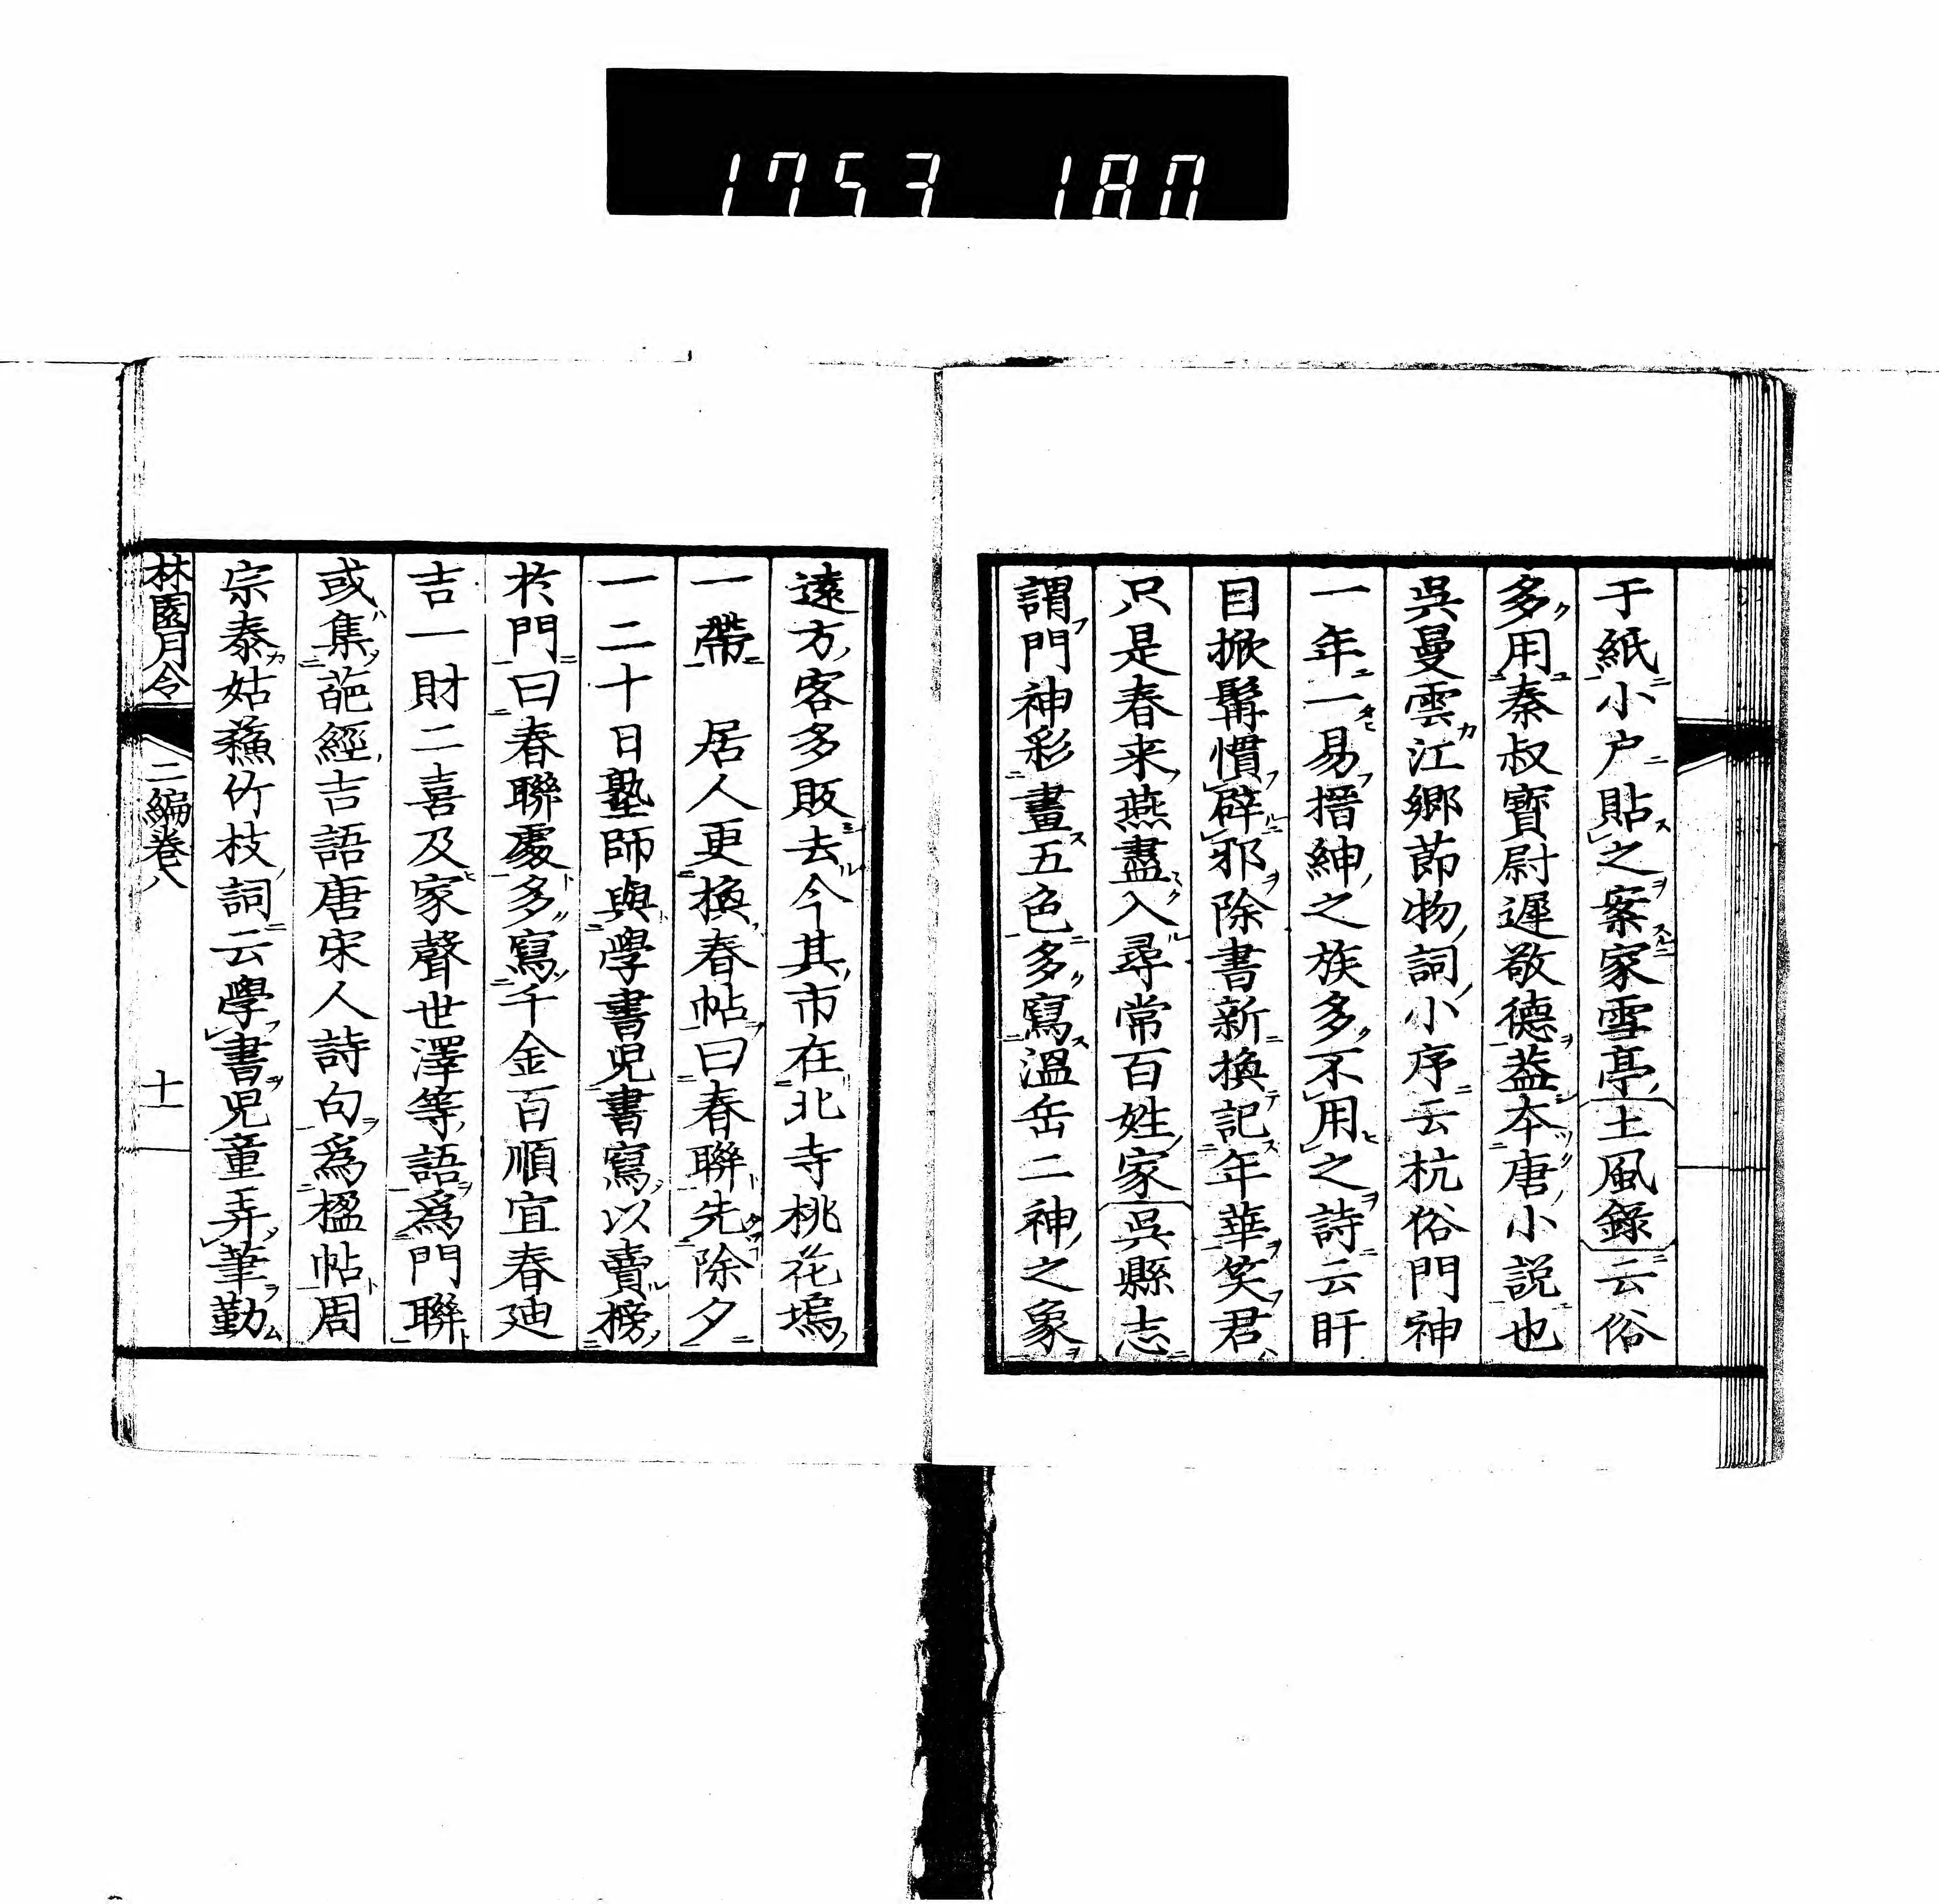 1753 180
于紙小户貼之案家雪亭土風錄云俗
多用秦叔寳尉遲敬德葢本唐小説也
吳曼雲江鄉節物詞小序云杭俗門神
一年一易搢紳之族多不用之詩云盱
目掀髯慣辟邪除書新換記年華笑君
只是春来燕盡入尋常百姓家吳縣志
謂門神彩畫五色多寫溫岳二神之象
遠方客多販去今其市在北寺桃花塢
一帶　居人更換春帖曰春聯先除夕
一二十日塾師與學書児書寫以賣榜
於門曰春聯處多寫千金百順宜春廸
吉一財二喜及家聲世澤等語爲門聯
或集葩經吉語唐宋人詩句爲楹帖周
宗泰姑蘓竹枝詞云學書児童弄筆勤
林園月令　二編卷八　十一